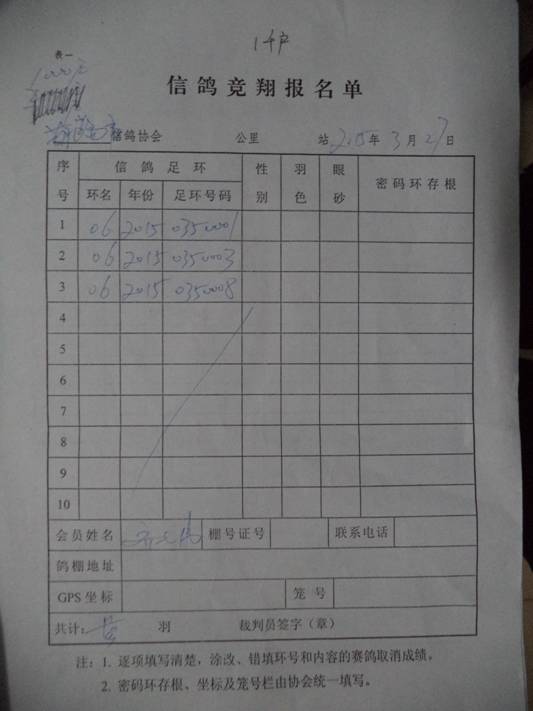 1千户
表一
信鸽竞翔报名单
信鸽协会 公里 站 2015年3月27日
序号 信鸽足环 性别 羽色 眼砂 密码环存根
环名 年份 足环号码
1 06 2015 0350001
2 06 2015 0350003
3 06 2015 0350008
4
5
6
7
8
9
10
会员姓名 棚号证号 联系电话
鸽棚地址
GPS坐标 笼号
共计: 羽 裁判员签字(章)
注: 1. 逐项填写清楚,涂改、错填环号和内容的赛鸽取消成绩。
2. 密码环存根、坐标及笼号栏由协会统一填写。